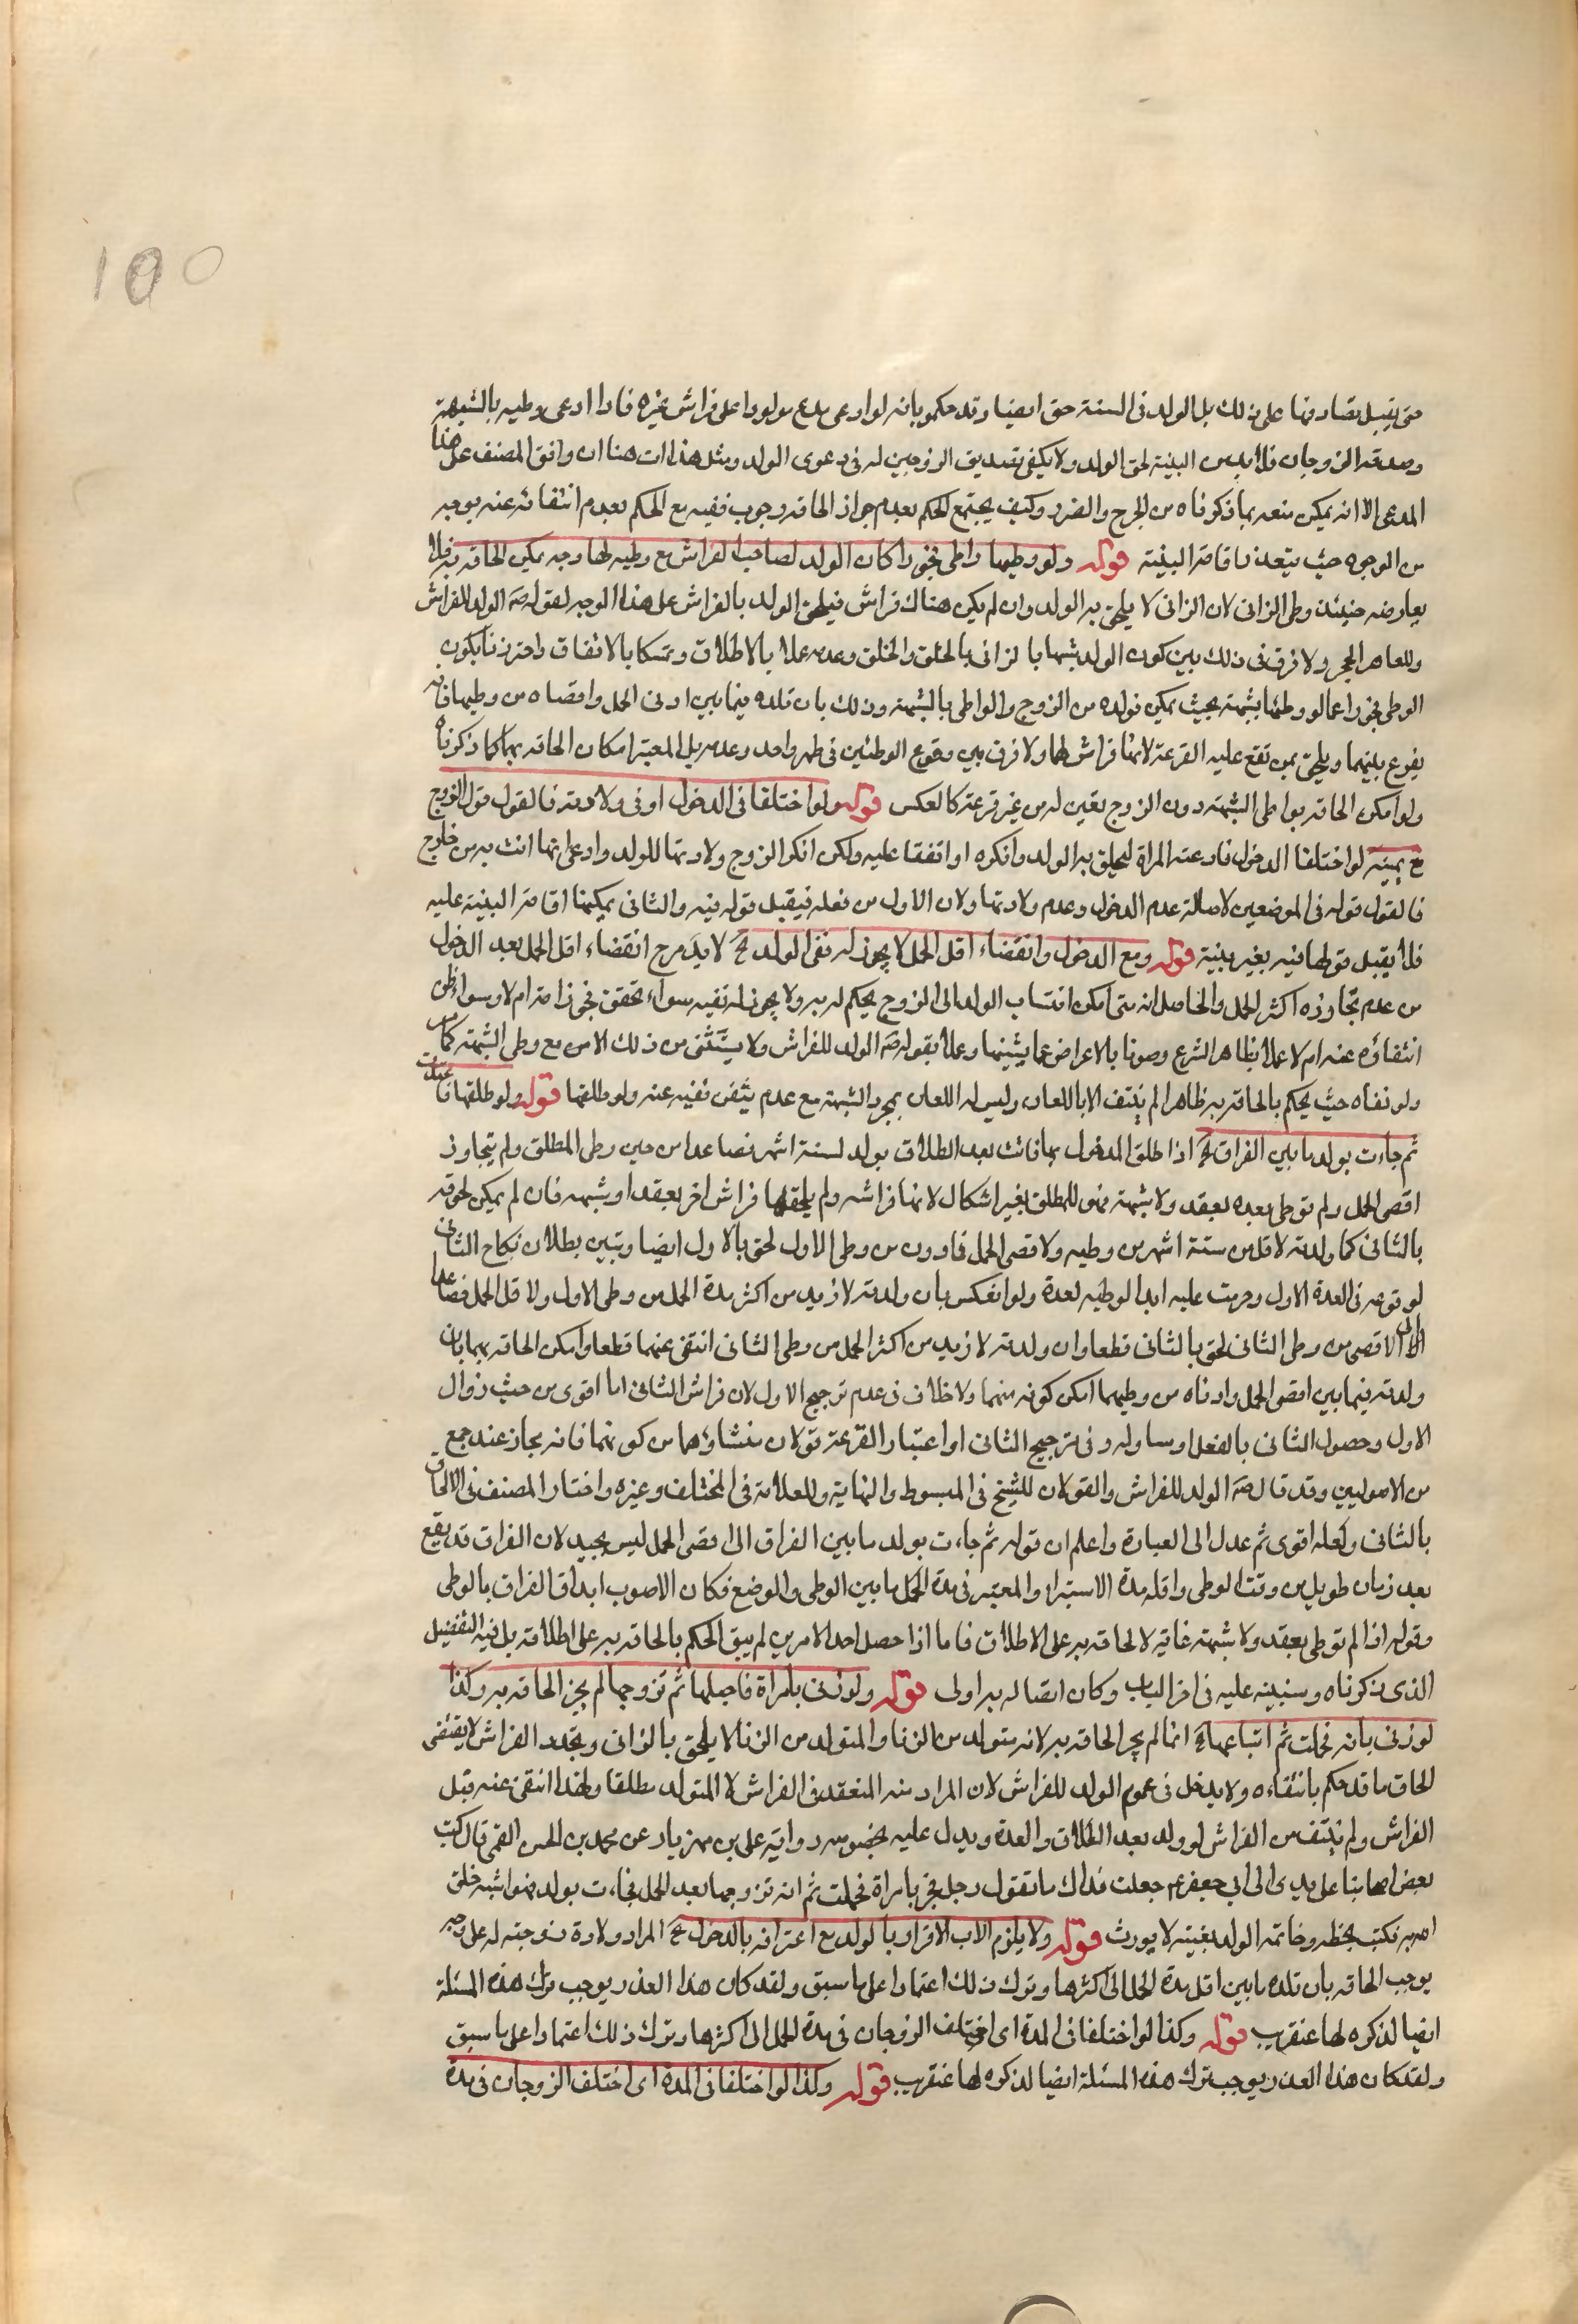 ١٥٥
حتى يقبل تصادقهما على ذلك بل الولد في النسب حق ايضا وقد حكموا بانه لو ادعى مدع مولودا على فراش غيره فاذا ادعى وطيه بالشبهة
وصدقه الزوجان فلا بد من البينة لحق الولد ولا يكفي تصديق الزوجين له في دعوى الولد ومثل هذا ات هنا ان وافق المصنف على هذا
المدعى الا انه يمكن منعه بما ذكرناه من الحرج والضرر وكيف يجتمع الحكم بعدم جواز الحاقه وجوب نفيه مع الحكم بعدم انتفائه عنه بوجه
من الوجوه حيث يتعذر اقامة البينة قوله ولو وطيها واطئ فجورا كان الولد لصاحب الفراش مع وطيه لها وجه يمكن الحاقه به فلا
يعارضه حينئذ وطي الزاني لان الزاني لا يلحق به الولد وان لم يكن هناك فراش فيلحق الولد بالفراش على هذا الوجه لقوله صه الولد للفراش
وللعاهر الحجر ولا فرق في ذلك بين كون الولد شبيها بالزاني بالخلق والخلق وعدمه عملا بالاطلاق وتمسكا بالاتفاق واحترزنا بكون
الوطي فجورا عما لو وطئها بشبهة بحيث يمكن تولده من الزوج والواطي بالشبهة وذلك بان تلده فيما بين ادنى الحمل واقصاه من وطيهما فانه
يقرع بينهما ويلحق بمن تقع عليه القرعة لانها فراش لهما ولا فرق بين وقوع الوطئين في طهر واحد وعدمه بل المعتبر امكان الحاقه بهما كما ذكرناه
ولو امكن الحاقه بواطي الشبهة دون الزوج تعين له من غير قرعة كالعكس قوله ولو اختلفا في الدخول او في ولادته فالقول قول الزوج
مع يمينه لو اختلفا الدخول فادعته المراة ليلحق به الولد وانكره او اتفقا عليه ولكن انكر الزوج ولادتها للولد وادعى انها اتت به من خارج
فالقول قوله في الموضعين لاصالة عدم الدخول وعدم ولادتها ولان الاول من فعله فيقبل قوله فيه والثاني يمكنها اقامة البينة عليه
فلا يقبل قولها فيه بغير بينة قوله ومع الدخول وانقضاء اقل الحمل لا يجوز له نفي الولد الخ لا بد مرج انقضاء اقل الحمل بعد الدخول
من عدم تجاوزه اكثر الحمل والحاصل انه متى امكن انتساب الولد الى الزوج يحكم له به ولا يجوز له نفيه سواء تحقق فجورا مه ام لا وسواء ظن
انتفاؤه عنه ام لا عملا بظاهر الشرع وصونا بالاعراض عما يشينها وعملا بقوله صه الولد للفراش ولا يستثنى من ذلك الا من مع وطي الشبهة كما مر
ولو نفاه حيث يحكم بالحاقه به ظاهرا لم ينتف الا باللعان وليس له اللعان بمجرد الشبهة مع عدم نفيه عنه ولو طلقها قوله ولو طلقها فاعتدت
ثم جاءت بولد ما بين الفراق الخ اذا طلق المدخول بها فاتت بعد الطلاق بولد لستة اشهر فصاعدا من حين وطي المطلق ولم يتجاوز
اقصى الحمل ولم توطى بعده بعقد ولا شبهة فهو للمطلق بغير اشكال لانها فراشه ولم يلحقها فراش اخر بعقد او شبهه فان لم يمكن لحوقه
بالثاني كما ولدته لاقل من ستة اشهر من وطيه ولاقصى الحمل فادون من وطي الاول لحق بالاول ايضا وتبين بطلان نكاح الثاني
لوقوعه في العدة الاول وحرمت عليه ابدا لوطيه لعدة ولو انعكس بان ولدته لازيد من اكثر مدة الحمل من وطي الاول ولاقل الحمل فصاعدا
الى الاقصى من وطي الثاني لحق بالثاني قطعا وان ولدته لازيد من اكثر الحمل من وطي الثاني انتفى عنهما قطعا وامكن الحاقه بهما بان
ولدته فيما بين اقصى الحمل وادناه من وطيهما امكن كونه منهما ولا خلاف في عدم ترجيح الاول لان فراش الثاني اما اقوى من حيث زوال
الاول وحصول الثاني بالفعل او مساو له وفي ترجيح الثاني او اعتبار القرعة قولان منشاؤهما من كونهما فانه مجاز عند جمع
من الاصوليين وقد قال صه الولد للفراش والقولان للشيخ في المبسوط والنهاية وللعلامة في المختلف وغيره واختار المصنف في الالحاق
بالثاني ولعله اقوى ثم عدل الى العبارة واعلم ان قوله ثم جاءت بولد ما بين الفراق الى اقصى الحمل ليس بجيد لان الفراق قد يقع
بعد زمان طويل من وقت الوطي واقله مدة الاستبراء والمعتبر في مدة الحمل ما بين الوطي والوضع فكان الاصوب ابداق الفراق بالوطي
وقوله اذا لم توطى بعقد ولا شبهة غاية لالحاقه به على الاطلاق فاما اذا حصل احد الامرين لم يبق الحكم بالحاقه به على اطلاقه بل فيه التفصيل
الذي ذكرناه وسنبينه عليه في اخر الباب وكان اتصاله به اولى قوله ولو زنى بامراة فاحبلها ثم تزوجها لم يجز الحاقه به وكذا
لو زنى بامه فحملت ثم ابتاعها الخ انما لم يجز الحاقه به لانه متولد من الزنا والمتولد من الزنا لا يلحق بالزاني وتجدد الفراش لا يقتضي
الحاق ما قد حكم بانتفاءه ولا يدخل في عموم الولد للفراش لان المراد منه المنعقد في الفراش لا المتولد مطلقا ولهذا انتفى عنه قبل
الفراش ولم ينتف من الفراش لو ولد بعد الطلاق والعدة ويدل عليه بخصوصه رواية علي بن مهزيار عن محمد بن الحسن القمي قال كتب
بعض اصحابنا على يدي الى ابي جعفر ع جعلت فداك ما تقول رجل فجر بامراة فحملت ثم انه تزوجها بعد الحمل فجاءت بولد هو اشبه خلق
الله به فكتب بخطه وخاتمه الولد لغية لا يورث قوله ولا يلزم الاب الاقرار بالولد مع اعترافه بالدخول الخ المراد ولادة زوجته له على وجه
يوجب الحاقه بان تلده ما بين اقل مدة الحمل الى اكثرها وترك ذلك اعتمادا على ما سبق ولقد كان هذا العذر يوجب ترك هذه المسئلة
ايضا لذكره لها عنقريب قوله وكذا لو اختلفا في المدة اى اختلف الزوجان في مدة الحمل الى اكثرها وترك ذلك اعتمادا على ما سبق
ولقد كان هذا العذر يوجب ترك هذه المسئلة ايضا لذكره لها عنقريب قوله وكذا لو اختلفا في المدة اى اختلف الزوجان في مدة